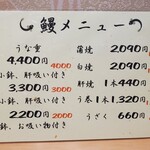 鰻メニュー
うな重
4,400円 4000
小鉢、肝吸い付き
3,300円 3000
小鉢、肝吸い付き
2200円 2000
小鉢、お吸い物付き
蒲焼 2,090円
白焼 2,090円
肝焼 1本440円
う巻1本1,320円
うざく 660円